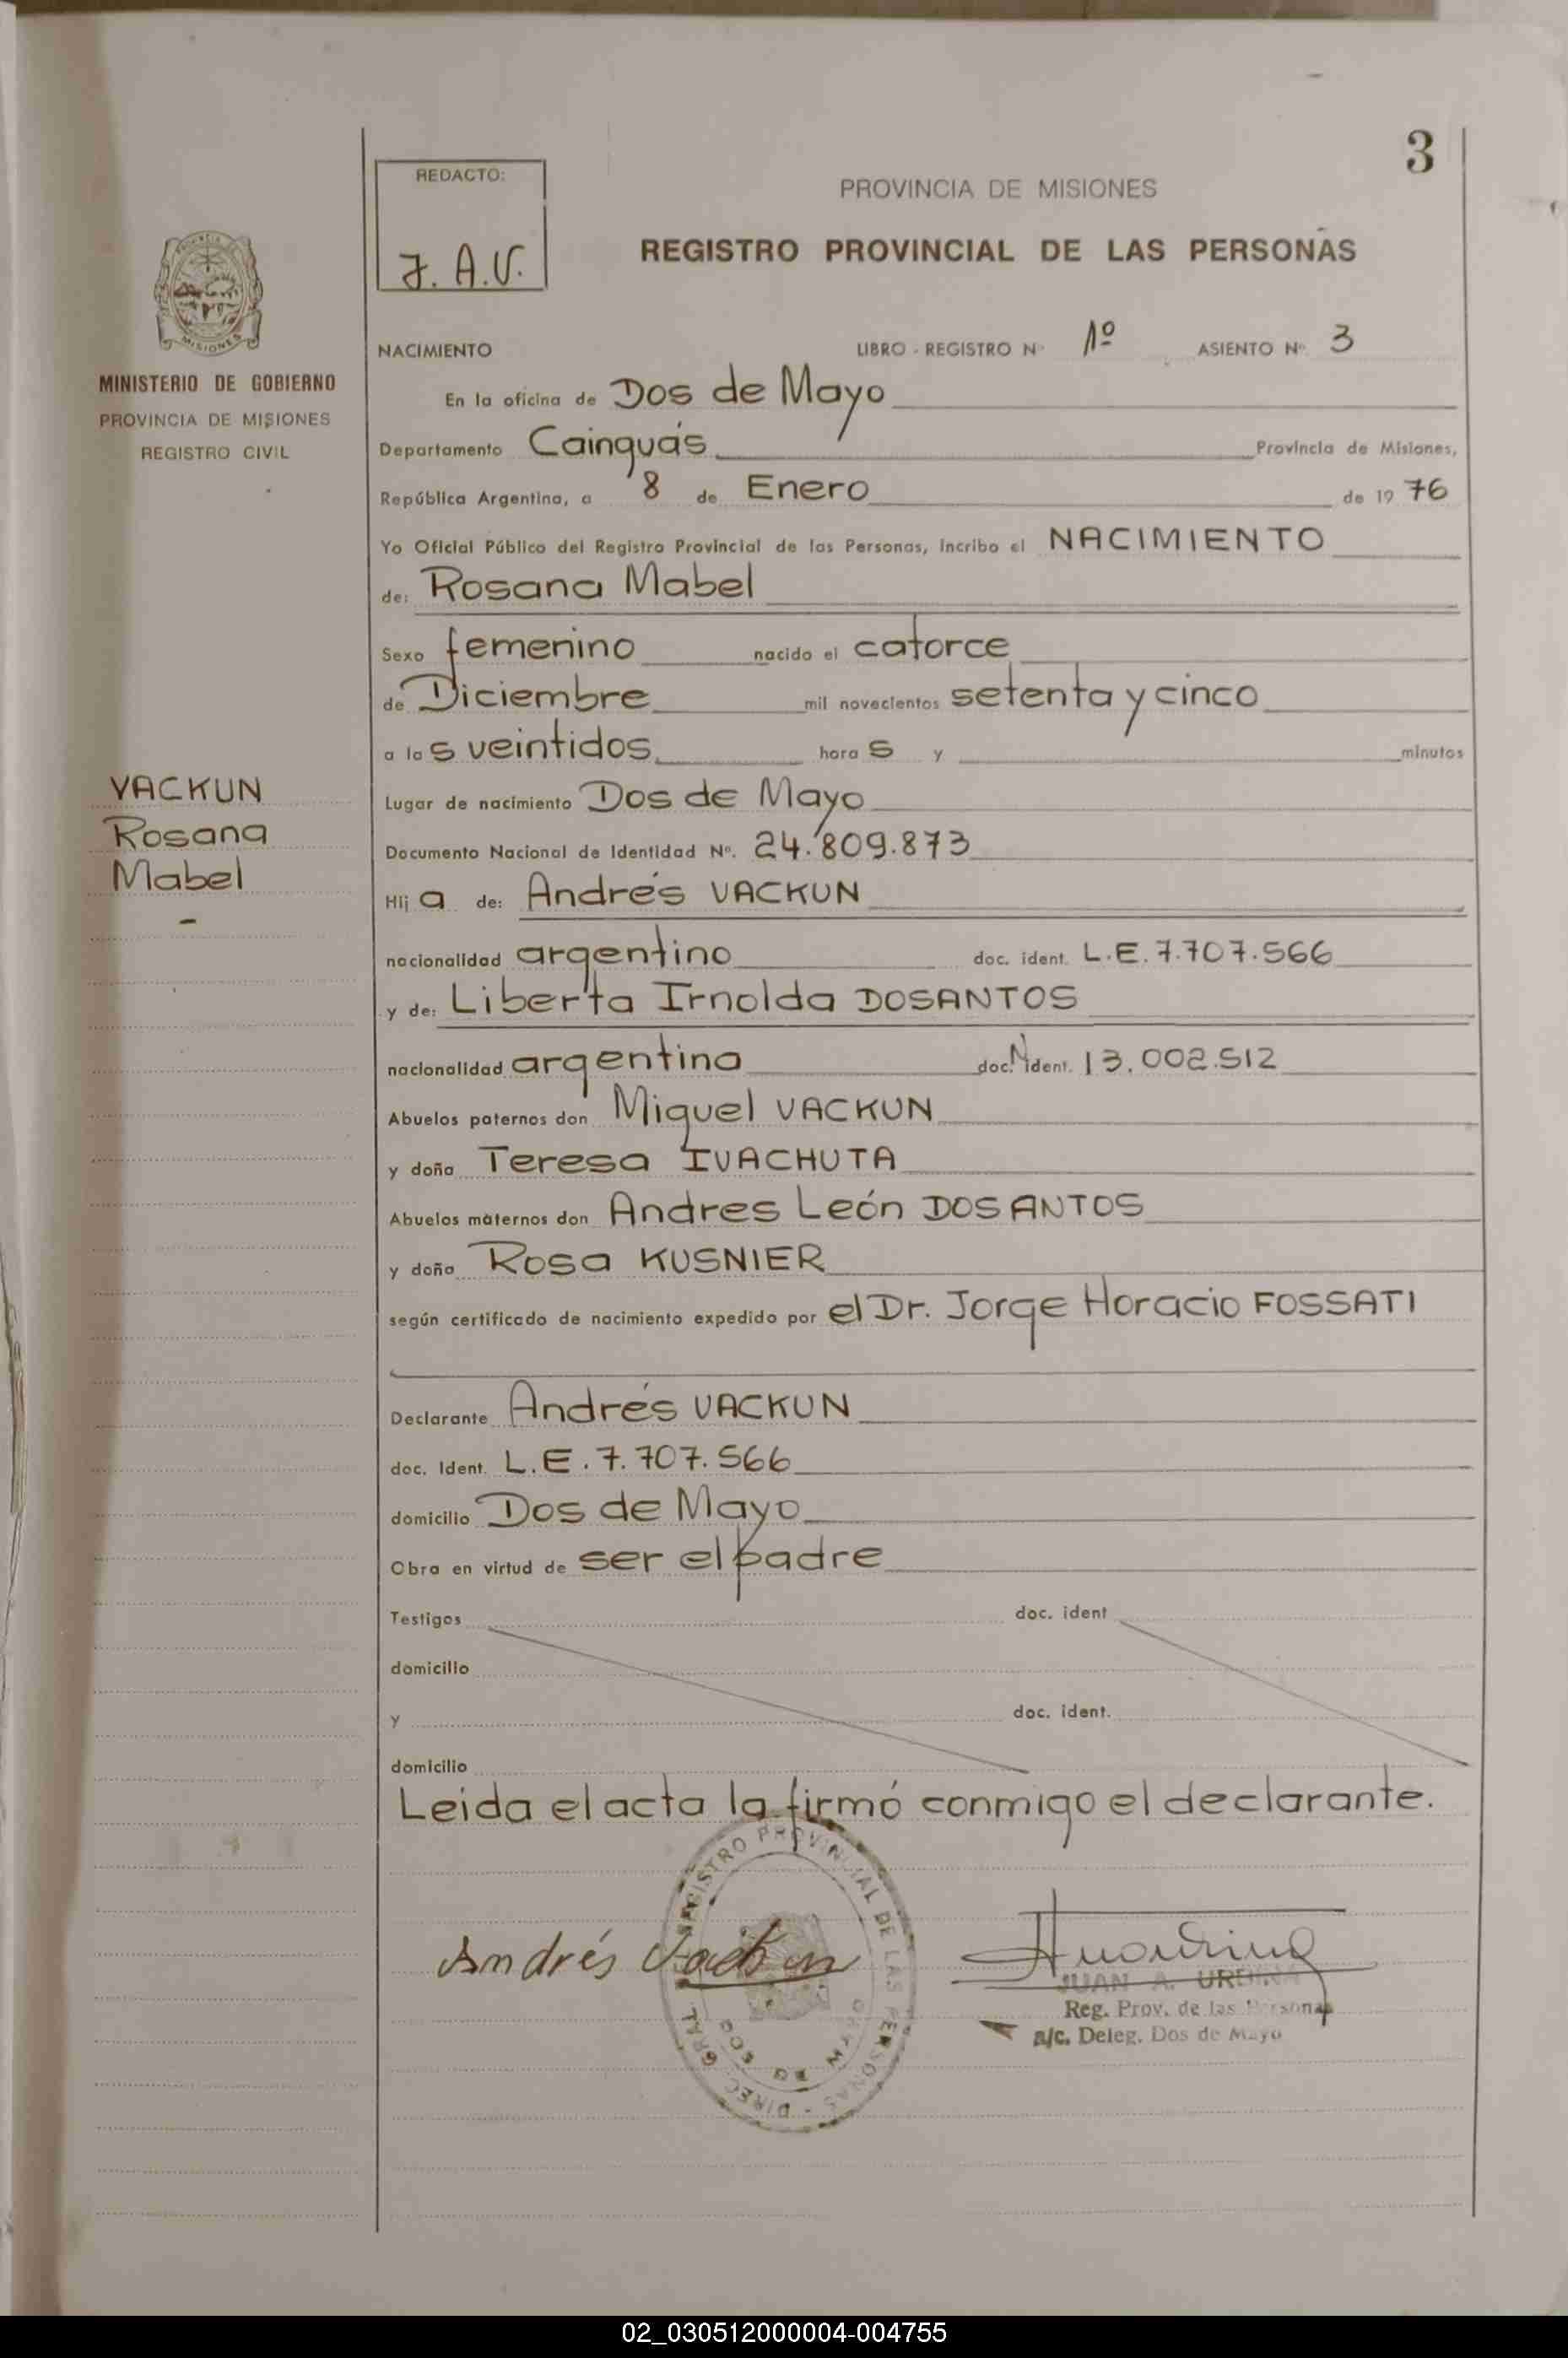 3
REDACTO:
J. A. V.
PROVINCIA DE MISIONES
REGISTRO PROVINCIAL DE LAS PERSONAS
MISIONES
MINISTERIO DE GOBIERNO
PROVINCIA DE MISIONES
REGISTRO CIVIL
NACIMIENTO LIBRO - REGISTRO Nº 1º ASIENTO Nº 3
En la oficina de Dos de Mayo
Departamento Cainguás Provincia de Misiones,
República Argentina, a 8 de Enero de 1976
Yo Oficial Público del Registro Provincial de las Personas, incribo el NACIMIENTO
de: Rosana Mabel
Sexo femenino nacido el catorce
de Diciembre mil novecientos setenta y cinco
a las veintidos horas y minutos
VACKUN
Rosana
Mabel
-
Lugar de nacimiento Dos de Mayo
Documento Nacional de Identidad Nº. 24.809.873
Hija de: Andrés VACKUN
nacionalidad argentino doc. ident. L.E. 7.707.566
y de: Liberta Irnolda DOSANTOS
nacionalidad argentina doc. N ident. 13.002.512
Abuelos paternos don Miguel VACKUN
y doña Teresa IVACHUTA
Abuelos maternos don Andres León DOSANTOS
y doña Rosa KUSNIER
según certificado de nacimiento expedido por el Dr. Jorge Horacio FOSSATI
Declarante Andrés VACKUN
doc. Ident. L.E. 7.707.566
domicilio Dos de Mayo
Obra en virtud de ser el padre
Testigos doc. ident
domicilio
y doc. ident.
domicilio
Leida el acta la firmó conmigo el declarante.
REGISTRO PROVINCIAL DE LAS PERSONAS - DIREC. GRAL.
Andrés Vackun
JUAN A. URDINA
Reg. Prov. de las Personas
a/c. Deleg. Dos de Mayo
02_030512000004-004755